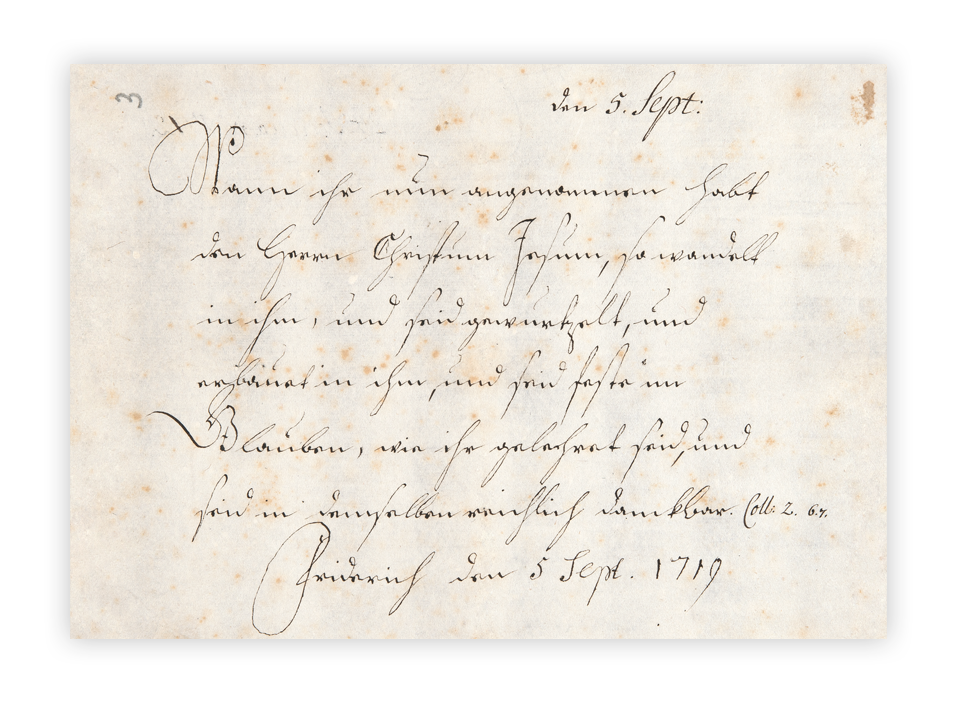 3
den 5. Sept:
Wann ihr nun angenommen habt
den Herrn Christum Jesum, so wandelt
in ihm, und seid gewurtzelt, und
erbauet in ihm, und seid feste im
Glauben, wie ihr gelehret seid, und
seid in demselben reichlich danckbar. Coll: 2. 6.7.
Friderich den 5 Sept. 1719